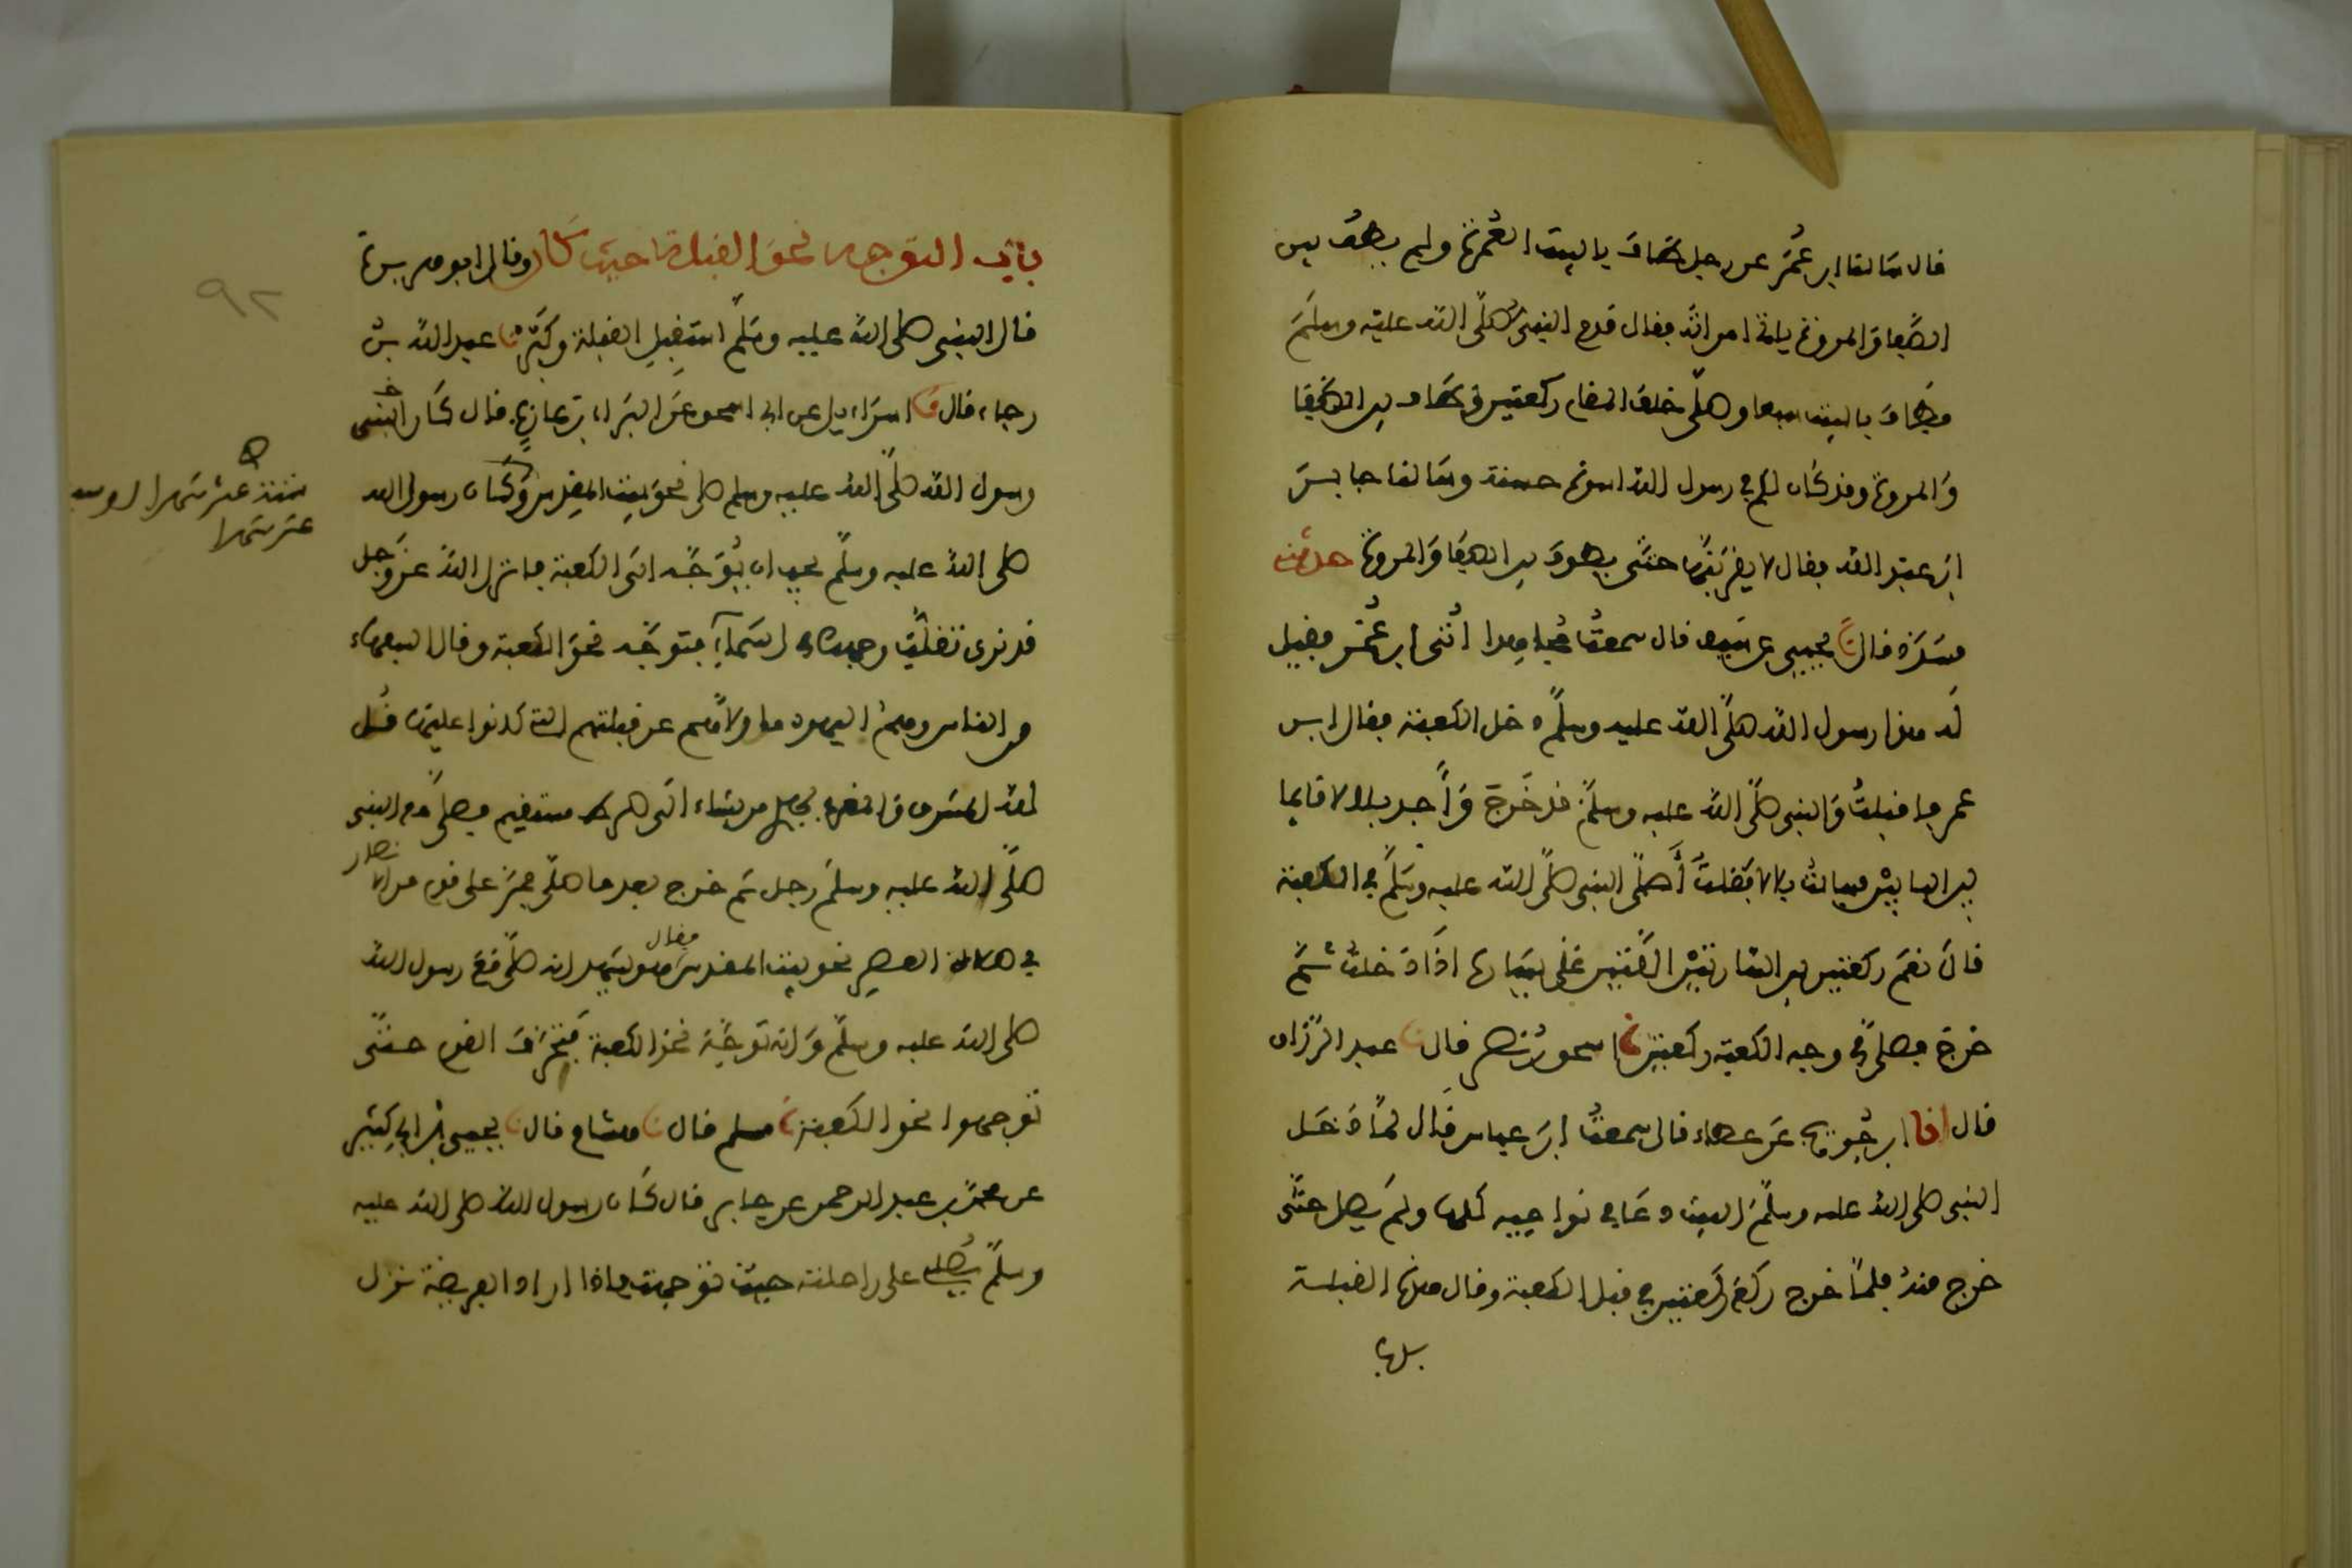 قال سالنا ابن عُمَرَ عن رجل طاف بالبيت العُمرة ولم يطف بين
الصّفا والمروة ياتي امراته فقال قدم النبي صلّى الله عليه وسلم
فطاف بالبيت سبعا وصلّى خلف المقام ركعتين وطاف بين الصّفا
والمروة وقد كان لكم في رسول الله اسوة حسنة وسالنا جابر
ابن عبد الله فقال لا يقربنّها حتّى يطوف بين الصفا والمروة حدثنا
مسدد قال نا يحيى عن سيف قال سمعتُ مجاهدا اُتى ابن عُمَر فقيل
له هذا رسول الله صلّى الله عليه وسلّم دخل الكعبة فقال ابن
عمر فاقبلتُ والنبي صلّى الله عليه وسلّم قد خرج وأجد بلالا قايما
بين البابين فسالت بلالا فقلتُ أَصلّى النبي صلّى الله عليه وسلّم في الكعبة
قال نعم ركعتين بين الساريتين اللّتين على يساره اذا دخلتَ ثُمّ
خرج فصلّى في وجه الكعبة ركعتين نا اسحق بن نصر قال نا عبد الرزاق
قال انا ابن جُريج عن عطاء قال سمعتُ ابن عباس قال لمّا دخل
النبي صلى الله عليه وسلّم البيت دعا في نواحيه كلها ولم يصل حتّى
خرج منهُ فلمّا خرج ركع ركعتين في قبل الكعبة وقال هذه القبلة
باب
بابُ التوجه نحو القبلة حيث كان وقال ابو هريرة
قال النبي صلى الله عليه وسلّم استقبِل القبلة وكبّر نا عبد الله بن
رجاء قال نا اسراءيل عن ابي اسحق عن البراء بن عازبٍ قال كان النبي
رسول الله صلّى الله عليه وسلم صلى نحو بيت المقدس وكان رسول الله
ستة عشر شهرا او سبعة
عشر شهرا
صلى الله عليه وسلّم يحب ان يُوَجَّه الى الكعبة فانزل الله عز وجل
قد نرى تقلّب وجهك في السّماء فتوجّه نحو الكعبة وقال السفهاء
من الناس وهمُ اليهود ما ولاهم عن قبلتهم التي كانوا عليها قل
لله المشرق والمغرب يهدي من يشاء الى صراط مستقيم فصلّى مع النبي
صلّى الله عليه وسلم رجل ثم خرج بعد ما صلّى فمرّ على قوم من الانصار
في صلاة العصر نحو بيت المقدس فقال هو يشهد انه صلّى مع رسول الله
صلى الله عليه وسلّم وانه توجّه نحو الكعبة فتحرّف القوم حتّى
توجهوا نحو الكعبة نا مسلم قال نا هشام قال نا يحيى بن ابي كثير
عن محمّد بن عبد الرحمن عن جابر قال كان رسول الله صلى الله عليه
وسلّم يُصلى على راحلته حيث توجهت فاذا اراد الفريضة نزل
٩٢